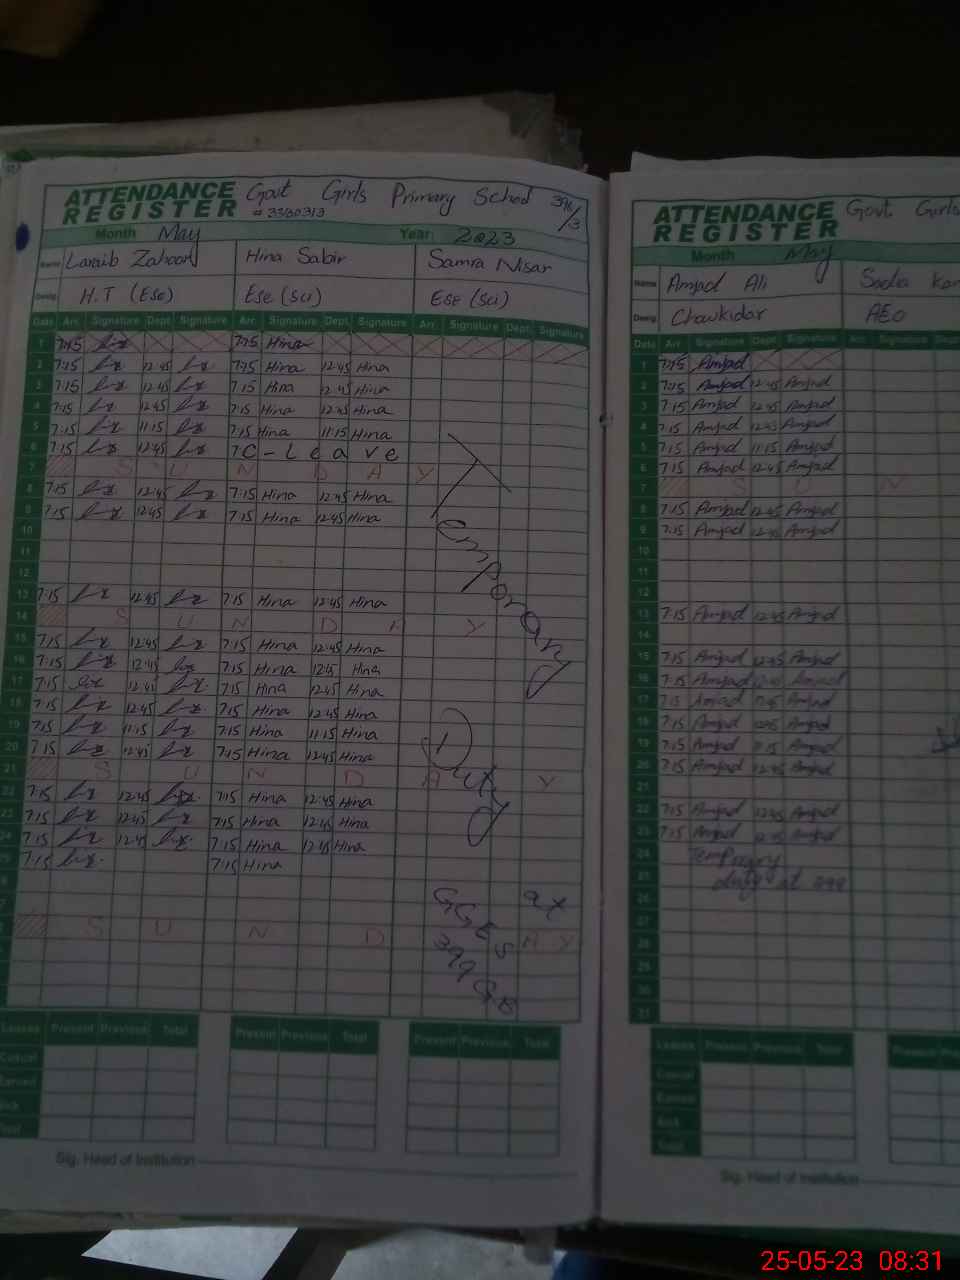 ATTENDANCE REGISTER Govt Girls Primary School 396/3
# 3330313
Month May Year: 2023
Name Laraib Zahoor Hina Sabir Samra Nisar
Desig. H.T (Ese) Ese (Sci) Ese (Sci)
Date Arr. Signature Dept. Signature Arr. Signature Dept. Signature Arr. Signature Dept. Signature
1 7:15 7:15 Hina
2 7:15 12:45 7:15 Hina 12:45 Hina
3 7:15 12:45 7:15 Hina 12:45 Hina
4 7:15 12:45 7:15 Hina 12:45 Hina
5 7:15 11:15 7:15 Hina 11:15 Hina
6 7:15 12:45 7 C-Leave
7 SUNDAY
8 7:15 12:45 7:15 Hina 12:45 Hina
9 7:15 12:45 7:15 Hina 12:45 Hina
10
11
12
13 7:15 12:45 7:15 Hina 12:45 Hina
14 SUNDAY
15 7:15 12:45 7:15 Hina 12:45 Hina
16 7:15 12:45 7:15 Hina 12:45 Hina
17 7:15 12:45 7:15 Hina 12:45 Hina
18 7:15 12:45 7:15 Hina 12:45 Hina
19 7:15 11:15 7:15 Hina 11:15 Hina
20 7:15 12:45 7:15 Hina 12:45 Hina
21 SUNDAY
22 7:15 12:45 7:15 Hina 12:45 Hina
23 7:15 12:45 7:15 Hina 12:45 Hina
24 7:15 12:45 7:15 Hina 12:45 Hina
25 7:15 7:15 Hina
SUNDAY
Temporary
Duty
at
GGES
399 GB
Leaves Present Previous Total Present Previous Total Present Previous Total
Casual
Earned
Sick
Total
Sig. Head of Institution
ATTENDANCE REGISTER Govt. Girls
Month May
Name Amjad Ali Sadia
Desig. Chowkidar AEO
Date Arr. Signature Dept. Signature Arr. Signature
1 7:15 Amjad
2 7:15 Amjad 12:45 Amjad
3 7:15 Amjad 12:45 Amjad
4 7:15 Amjad 12:45 Amjad
5 7:15 Amjad 11:15 Amjad
6 7:15 Amjad 12:45 Amjad
7 SUN
8 7:15 Amjad 12:45 Amjad
9 7:15 Amjad 12:45 Amjad
10
11
12
13 7:15 Amjad 12:45 Amjad
14
15 7:15 Amjad 12:45 Amjad
16 7:15 Amjad 12:45 Amjad
17 7:15 Amjad 12:45 Amjad
18 7:15 Amjad 12:45 Amjad
19 7:15 Amjad 11:15 Amjad
20 7:15 Amjad 12:45 Amjad
21
22 7:15 Amjad 12:45 Amjad
23 7:15 Amjad 12:45 Amjad
24 Temporary
25 duty at 399
26
27
28
29
30
31
Leaves Present Previous Total Present
Casual
Earned
Sick
Total
Sig. Head of Institution
25-05-23 08:31